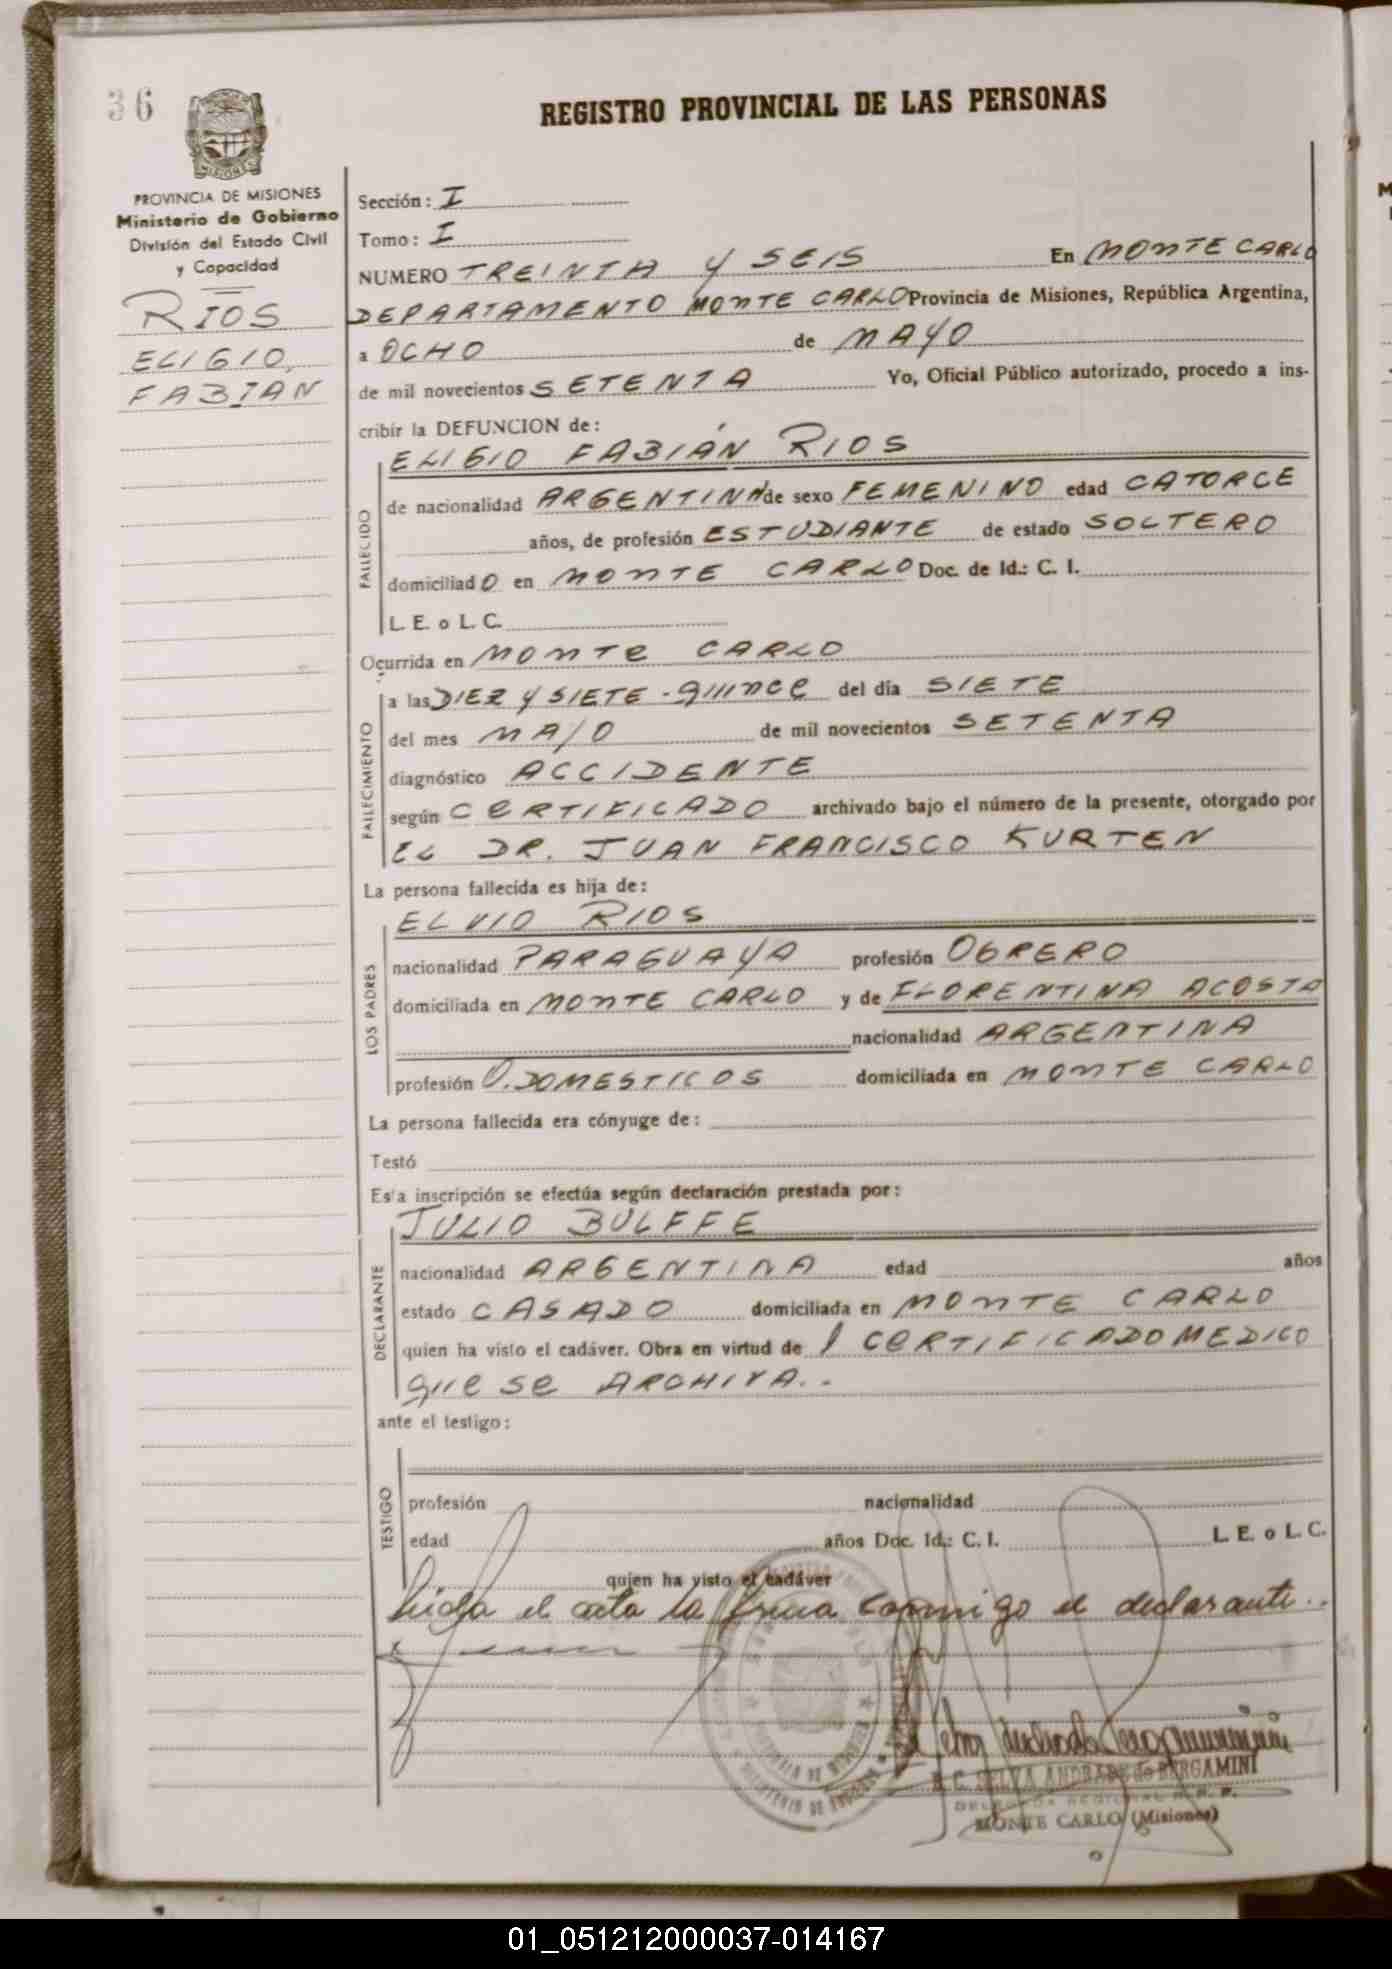 36
REGISTRO PROVINCIAL DE LAS PERSONAS
PROVINCIA DE MISIONES
Ministerio de Gobierno
División del Estado Civil
y Capacidad
RIOS
ELIGIO,
FABIAN
Sección: I
Tomo: I
NUMERO TREINTA Y SEIS En MONTE CARLO
DEPARTAMENTO MONTE CARLO Provincia de Misiones, República Argentina,
a OCHO de MAYO
de mil novecientos SETENTA Yo, Oficial Público autorizado, procedo a ins-
cribir la DEFUNCION de:
ELIGIO FABIÁN RIOS
FALLECIDO
de nacionalidad ARGENTINA de sexo FEMENINO edad CATORCE
años, de profesión ESTUDIANTE de estado SOLTERO
domiciliado en MONTE CARLO Doc. de Id.: C. I.
L. E. o L. C.
Ocurrida en MONTE CARLO
FALLECIMIENTO
a las DIEZ Y SIETE - quince del día SIETE
del mes MAYO de mil novecientos SETENTA
diagnóstico ACCIDENTE
según CERTIFICADO archivado bajo el número de la presente, otorgado por
EL DR. JUAN FRANCISCO KURTEN
La persona fallecida es hija de:
LOS PADRES
ELVIO RIOS
nacionalidad PARAGUAYA profesión OBRERO
domiciliada en MONTE CARLO y de FLORENTINA ACOSTA
nacionalidad ARGENTINA
profesión Q. DOMESTICOS domiciliada en MONTE CARLO
La persona fallecida era cónyuge de:
Testó
Esta inscripción se efectúa según declaración prestada por:
DECLARANTE
JULIO BULFFE
nacionalidad ARGENTINA edad años
estado CASADO domiciliada en MONTE CARLO
quien ha visto el cadáver. Obra en virtud de 1 CERTIFICADO MEDICO
que se ARCHIVA..
ante el testigo:
TESTIGO
profesión nacionalidad
edad años Doc. Id.: C. I. L. E. o L. C.
quien ha visto el cadáver
Leida el acta la firma conmigo el declarante..
SELVA ANDRADE de BERGAMINI
DELEGADA REGIONAL R. P. P.
MONTE CARLO (Misiones)
01_051212000037-014167